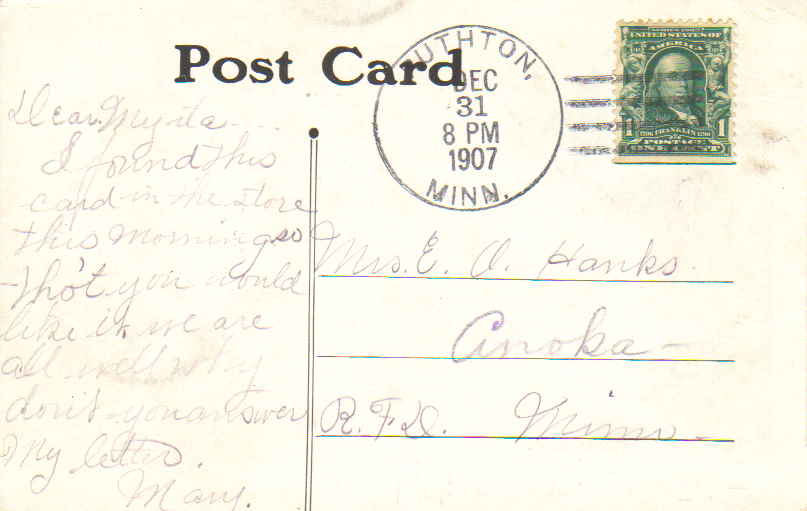 Post Card
RUTHTON,
DEC
31
8 PM
1907
MINN.
SERIES 1902
UNITED STATES OF
AMERICA
1 1
1706 FRANKLIN 1790
POSTAGE
ONE CENT
Dear Myrta
I found this
card in the store
this morning so
tho't you would
like it we are
all well why
don't you answer
my letter.
Mary.
Mrs. E. O. Hanks.
Anoka
R.F.D. Minn